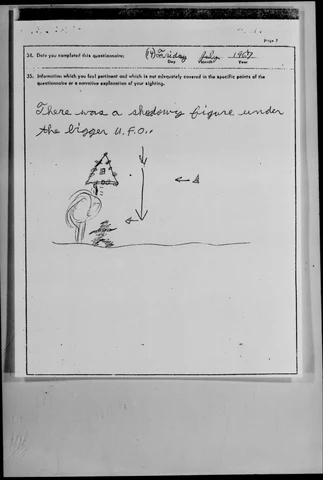 Page 7
34. Date you completed this questionnaire: (14) Friday July 1967
Day Month Year
35. Information which you feel pertinent and which is not adequately covered in the specific points of the
questionnaire or a narrative explanation of your sighting.
There was a shadowy figure under
the bigger U.F.O..